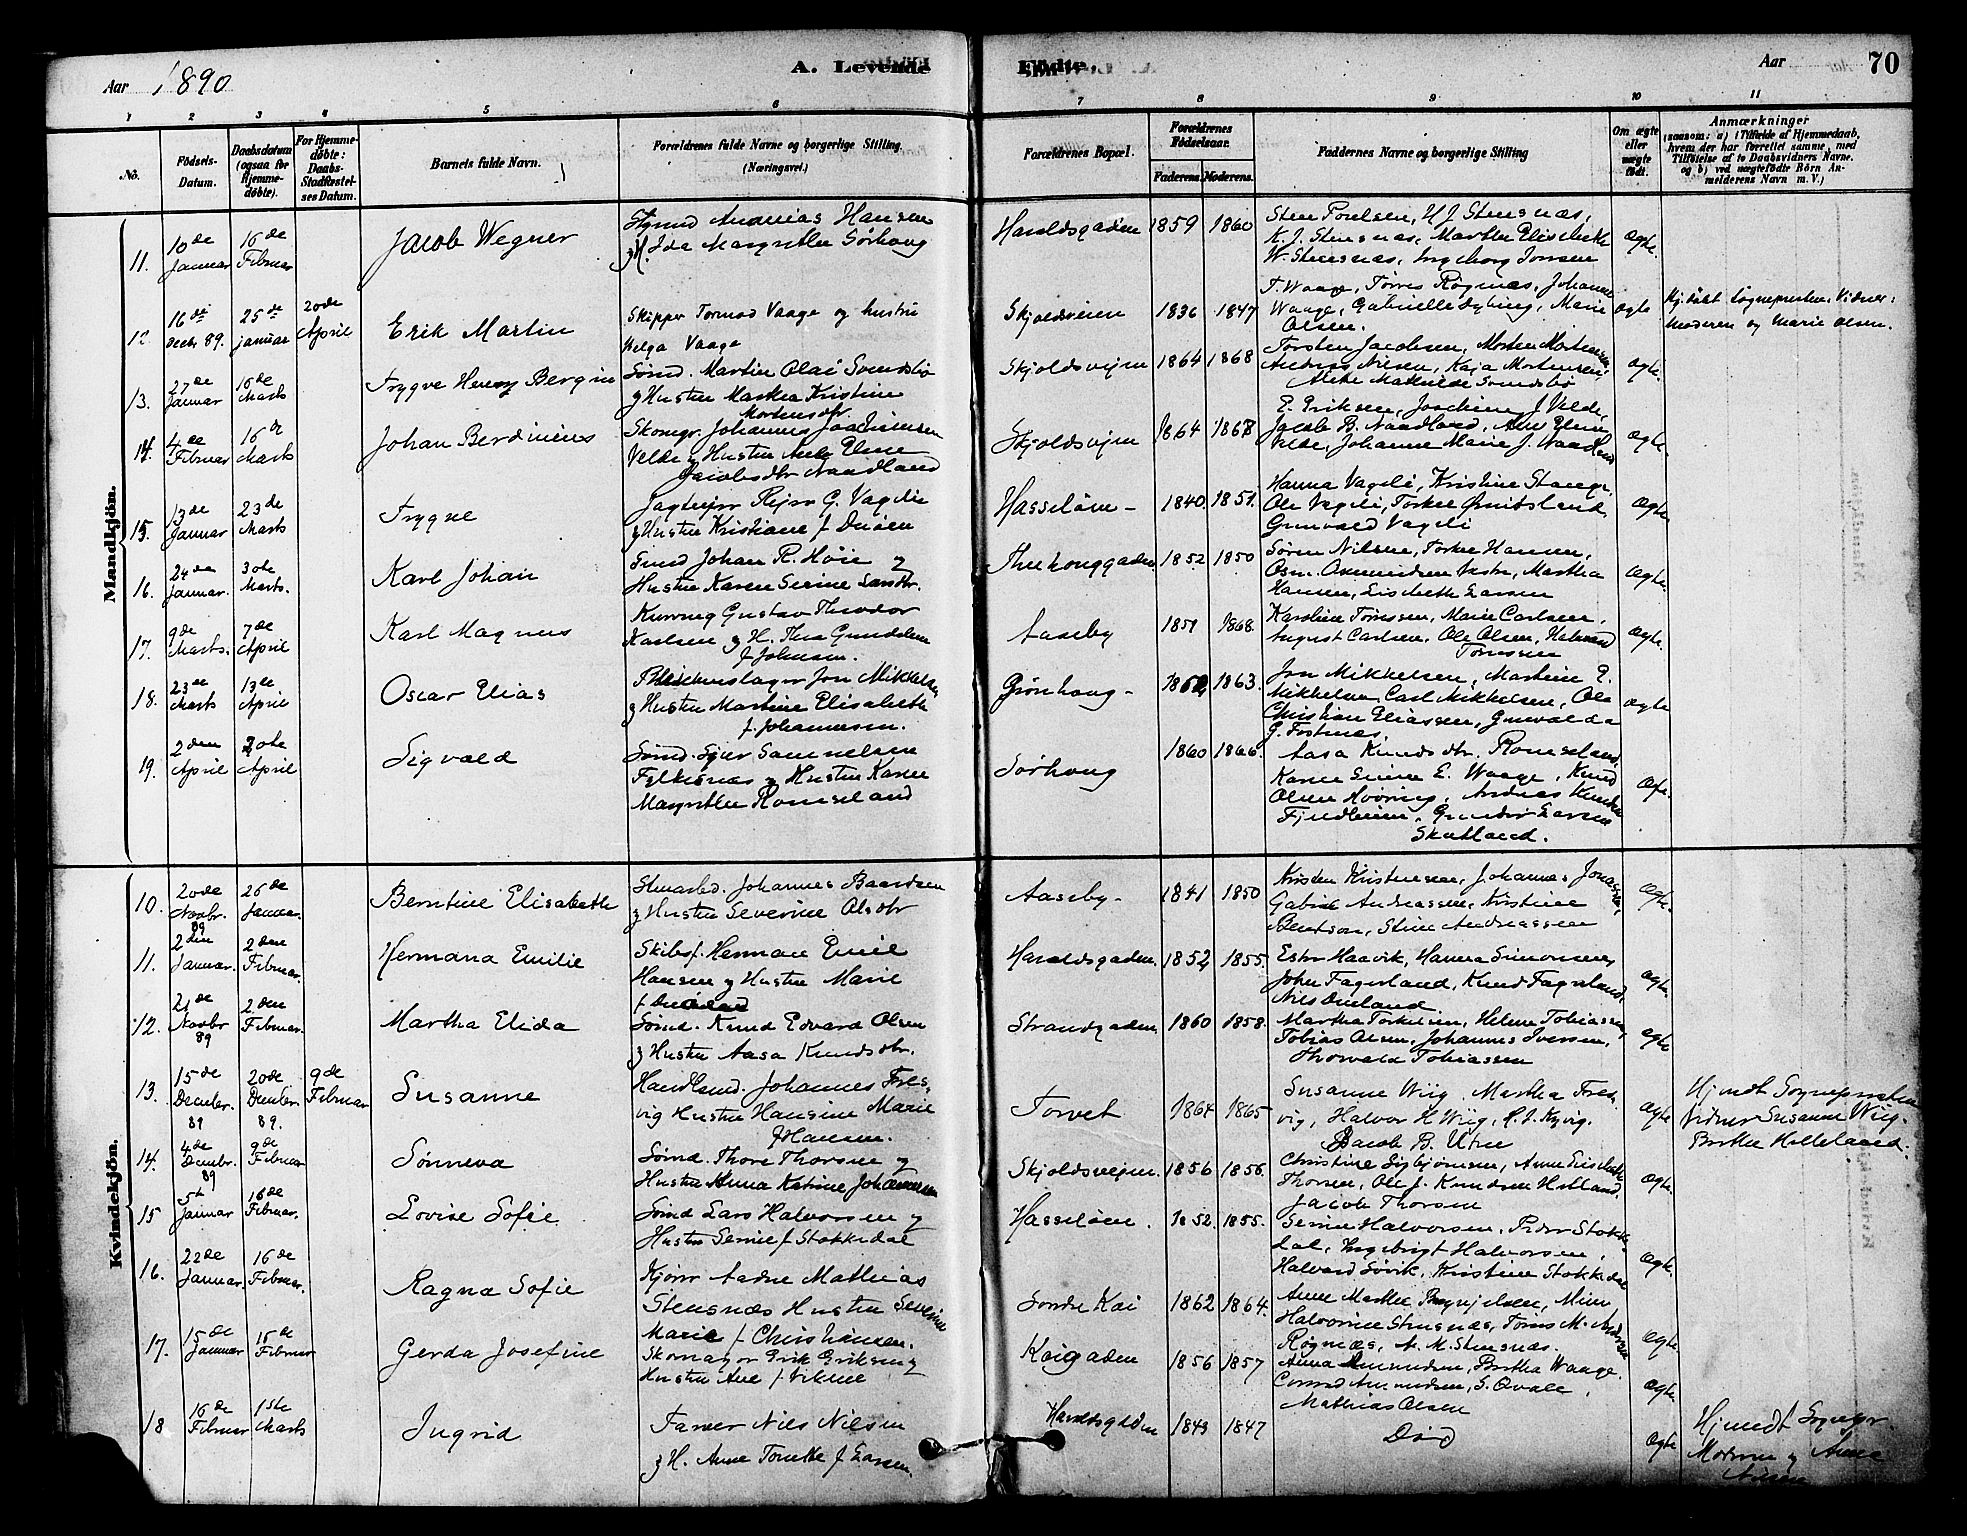 Aar 1890
A. Levende Fødte.
Aar 70
1 2 3 4 5 6 7 8 9 10 11
No.
Födsels-Datum.
Daabsdatum (ogsaa for Hjemmedöbte).
For Hjemmedöbte: Daabs-Stadfæstelses Datum.
Barnets fulde Navn.
Forældrenes fulde Navne og borgerlige Stilling (Næringsvei.)
Forældrenes Bopæl.
Forældrenes Födselsaar. Faderens. Moderens.
Faddernes Navne og borgerlige Stilling
Om ægte eller uægte födt.
Anmærkninger
(saasom: a) i Tilfælde af Hjemmedaab,
hvem der har forrettet samme, med
Tilföielse af to Daabsvidners Navne.
og b) ved uægtefödte Börn An-
melderens Navn m. V.)
Mandkjön.
11. 10de Januar 16de Februar Jacob Wegner
Ananias Hansen
Ida Margrethe Sørhoug
Haraldsgaden 1859 1860
Sten Poulsen, H J Stensnæs,
K. J. Stensnæs, Marthe Elisabeth
W. Stensnæs, Ingeborg Jonsen
Ægte.
12. 16de Decbr 89. 25de januar 20de April Erik Martin
Skipper Tormod Vaage og hustru
Helga Vaage
Skjoldsveien 1836 1847
T. Waage, Tørres Røgnæs, Johanne
Waage, Gabrielle Nybing, Marie
Olsen.
Ægte
Hj.døbt Sogneprsten. Vidner:
Moderen og Marie Olsen.
13. 27de Januar 16de Marts Trygve Henry Bergin
Sømd. Martin Olai Svendsbø
og Hustru Marthea Kristine
Mortensdtr.
Skjoldsvejen 1864 1868
Torsten Jacobsen, Morten Mortensen,
Andreas Nilsen, Kaja Mortensen,
Mathilde Svendsbø
Ægte.
14. 4de Februar 16de Marts Johan Berdinius
Skomgr. Johannes Joachimsen
Velde og Hustru Ane Eline
Jacobsdtr Naadland
Skjoldsvejen 1864 1868
E. Eriksen, Joachim J. Velde,
Jacob B. Naadland, Ane Eline
Velde, Johanne Marie J. Naadland
Ægte.
15. 13de Januar 23de Marts Trygve
G. Vagele
og Hustru Kristiane f.
Hasseløen- 1840 1851.
Hanna Vagele, Kristine Stange,
Ole Vagele, Torkel
Gunvald Vagele
Ægte.
16. 24de Januar. 30te Marts. Karl Johan
Smed Johan R. Høie og
Hustru Karen Serine Larsdtr.
1852 1850
Søren Nilsen, Torkel Hansen,
Martha
Hansen, Lisebeth Larsen
Ægte.
17. 9de Marts. 7de April Karl Magnus
Gustav Theodor
Karlsen og H. Thea Gundelene
f. Johnsen.
Aaseby 1851 1868.
Karoline Tønnesen, Marie Carlsen,
August Carlsen, Ole Olsen, Halvard
Tønnesen
Ægte.
18. 23de Marts 13de April Oscar Elias
Blikkenslager Jon Mikkelsen
og Hustru Martine Elisabeth
f. Johannesen.
Grønhoug- 1862 1863.
Jon Mikkelsen, Martine E.
Mikkelsen, Carl Mikkelsen, Ole
Christian Eliassen, Gunvalda
G. Fostnæs.
Ægte
19. 2den April 20te April Sigvald
Sømd. Sjur Samuelsen
Felkesnæs og Hustru Karen
Margrethe Romseland
Sørhoug 1860 1866.
Aasa Knudsdtr. Romseland,
Karen Serine E. Waage, Knud
Olsen, Andreas Knudsen
Fjeldheim, Larsen
Skutland.
Kvindekjön.
10. 20de Novbr. 89 26de Januar. Berntine Elisabeth
Johannes Baardsen
og Hustru Severine Olsdtr
Aaseby- 1841 1850
Kristen Kristensen, Johannes Jonassen,
Gabriel Andreassen, Kristine
Bentson, Stine Andreassen
Ægte.
11. 2den Januar. 2den Februar. Hermana Emilie
Skibsf. Herman Emil
Hansen og Hustru Marie
Haraldsgaden. 1852 1855.
Ester Haavik, Hanna Simonsen,
John Fagerland, Knud Fagerland,
Nils
Ægte.
12. 21de Novbr 89 2den Februar. Martha Elida
Sømd. Knud Edvard Olsen
og Hustru Aasa Knudsdtr.
Strandgaden 1860 1858.
Martha Torkelsen, Helene Tobiassen,
Tobias Olsen, Johannes Iversen,
Thorvald Tobiassen
Ægte
13. 15de December. 89 20de December 89. 9de Februar Susanne
Handlend. Johannes Fres-
vig Hustru Hansine Marie
f Hansen.
Torvet 1864 1865
Susanne Wiig, Martha Fres-
vig, Halvor H Wiig, R. J. Kyvig,
Jacob B. Utne
Ægte
Hjmdt Sogneprsten
Vidner Susanne Wiig.
Birthe Helleland.
14. 4de Decmbr. 89 9de Februar Sønneva
Sømd. Thore Thorsen og
Hustru Anna Katrine Johannesen
Skjoldsvejen. 1856 1856.
Christine Sigbjørnsen, Anne Lisebeth
Thorsen, Ole J. Knudsen Hetland,
Jacob Thorsen
Ægte.
15 5te Januar 16de Februar. Lovise Sofie
Sømd Lars Halvorsen og
Hustru Serine f. Stokkedal
Hasseløen. 1852. 1855.
Serine Halvorsen, Peder Stokke-
dal, Ingebrigt Halvorsen,
Halvard Søvik, Kristine Stokkedal
Ægte.
16. 22de Januar. 16de Februar. Ragna Sofie
Kjører Aadne Mathias
Stensnæs Hustru Severine
Marie f. Christiansen.
Søndre Kai 1862 1864.
Anne Marthe
Halvorine Stensnæs, Tønnes M.
Røgnæs, A. M. Stensnæs.
Ægte
17. 15de Januar 16de Februar Gerda Josefine
Skomager Erik Eriksen og
Hustru Ane f. Vikene
Kaigaden 1856 1857
Anna Amundsen, Birtha Waage,
Conrad Amundsen, S. Qvale,
Mathias Olsen
Ægte
18 16de Februar 1ste Marts Ingrid
Farver Nils Nilsen
og H. Anne Tomette f Larsen.
Haraldsgaden 1843 1847
Død
Ægte
Hjmdt Sognepr.
Moderen og Anne